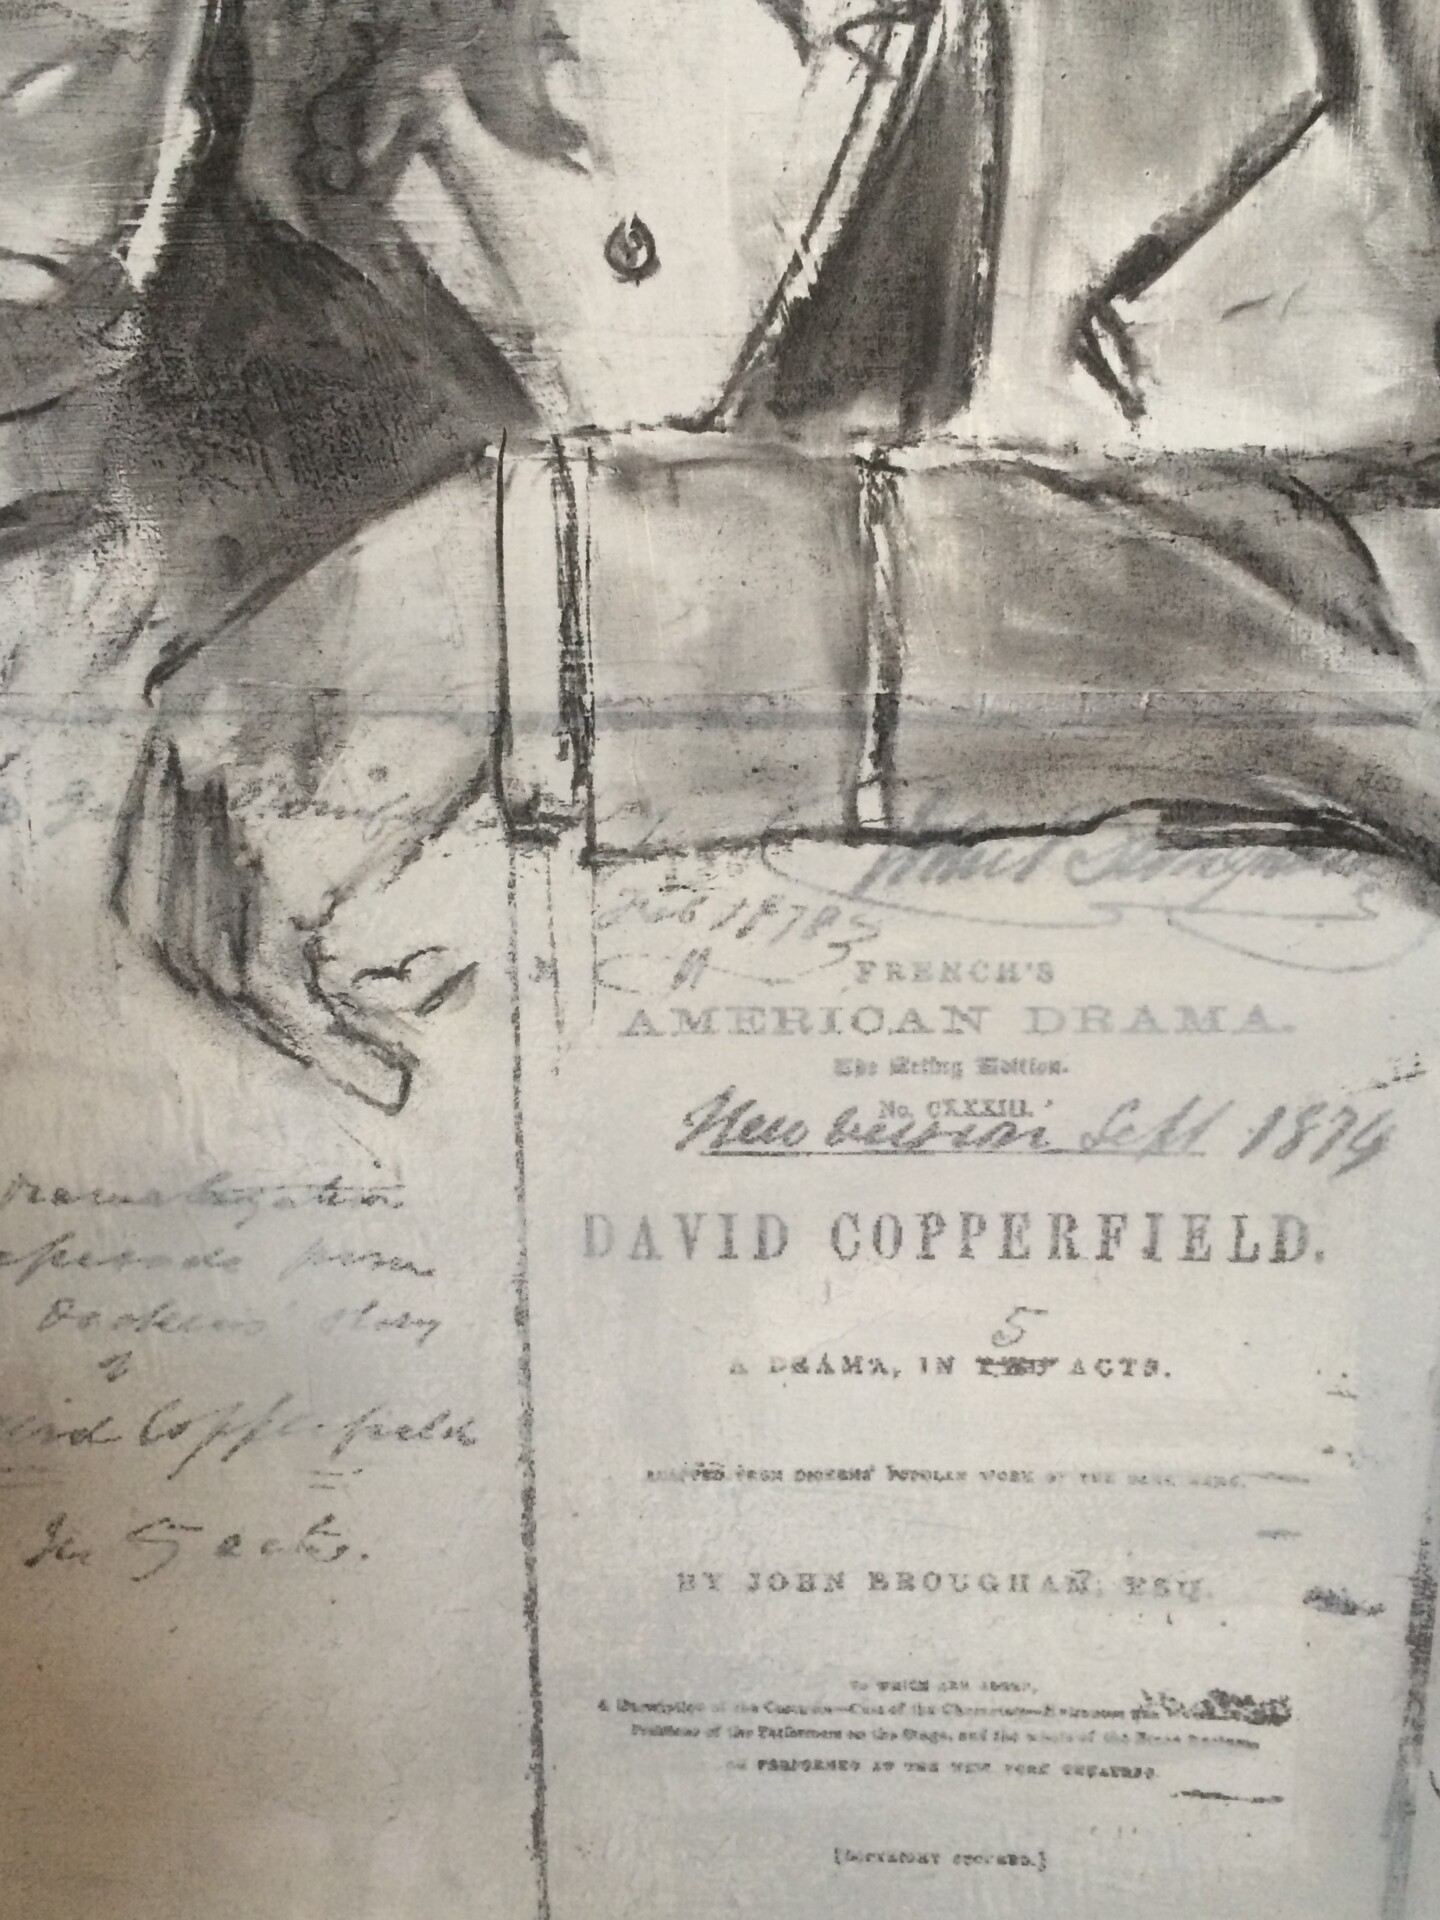 Feb 1878
FRENCH'S
AMERICAN DRAMA.
The Acting Edition.
No. CXXXIII.
New version Sept 1874
DAVID COPPERFIELD.
5
A DRAMA, IN TWO ACTS.
ADAPTED FROM DICKENS' POPULAR WORK OF THE SAME NAME.
BY JOHN BROUGHAM, ESQ.
TO WHICH ARE ADDED,
A Description of the Costume—Cast of the Characters—Entrances and
Positions of the Performers on the Stage, and the whole of the Stage Business
AS PERFORMED AT THE NEW YORK THEATRES.
[COPYRIGHT SECURED.]
Dramatization
episode from
Dickens' story
of
Copperfield
In 5 acts.